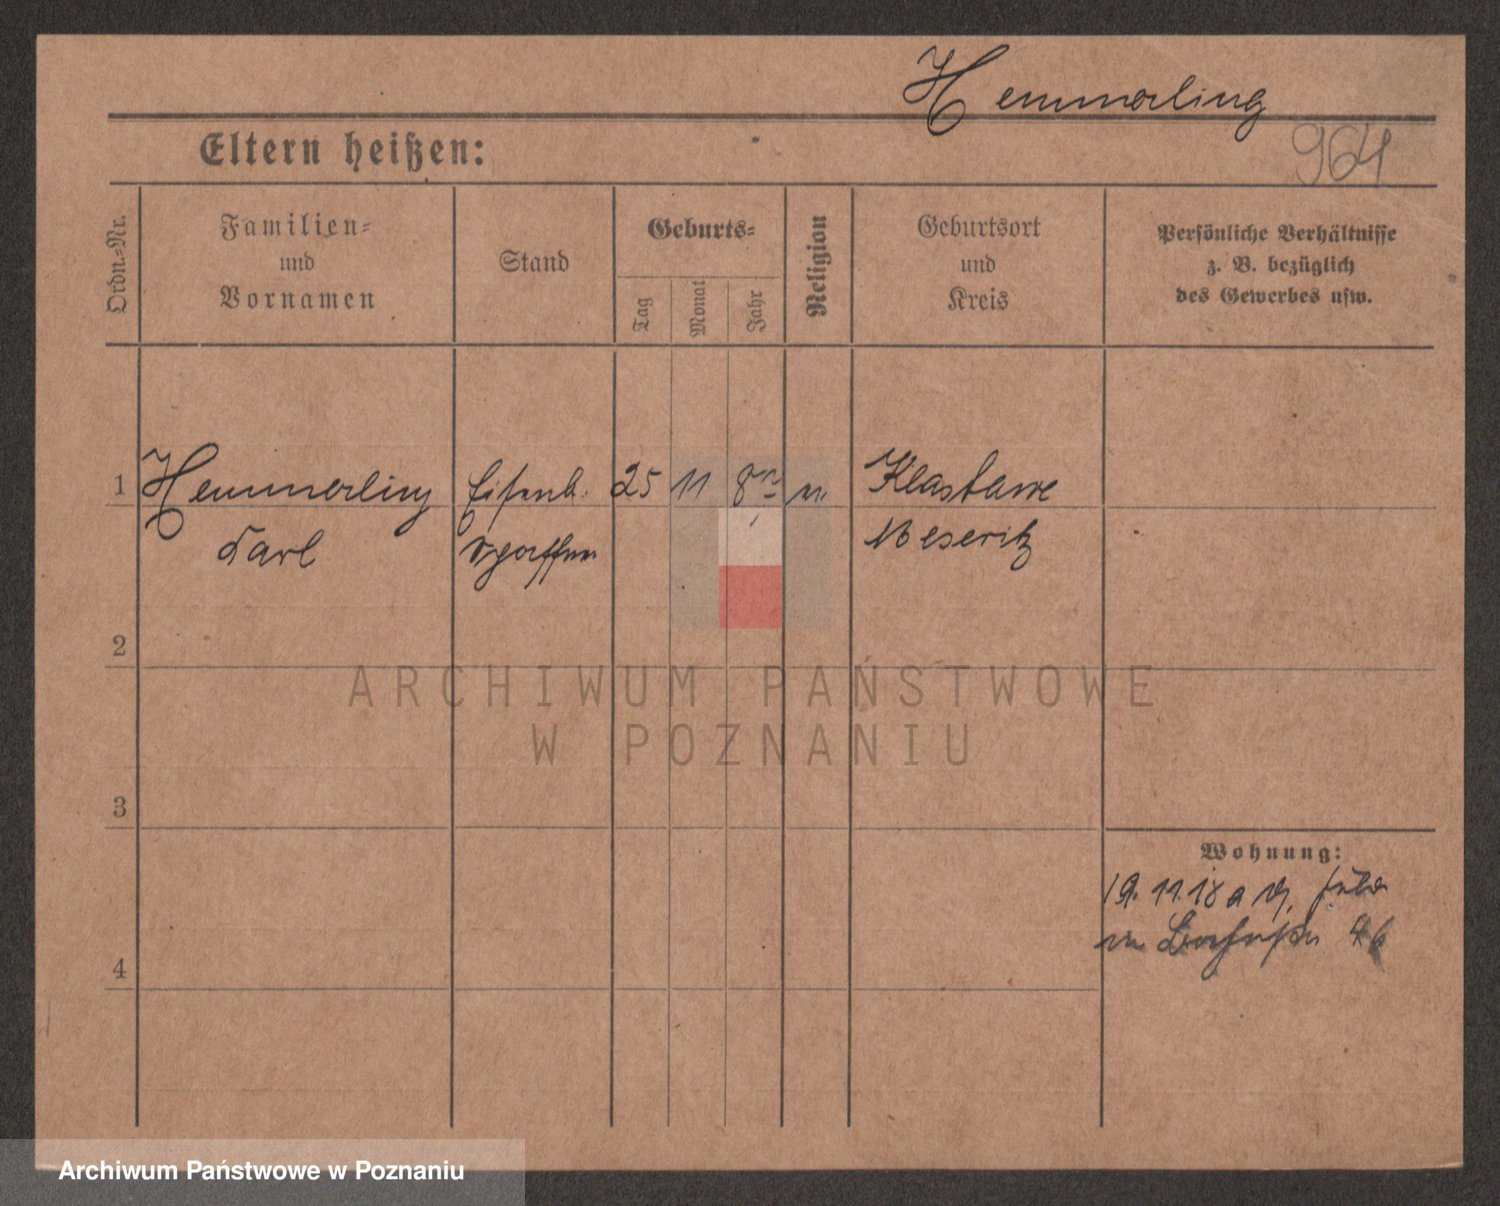 Hemmerling
964
Eltern heißen:
Ordn.=Nr.
Familien=
und
Vornamen
Stand
Geburts=
Tag
Monat
Jahr
Religion
Geburtsort
und
Kreis
Persönliche Verhältnisse
z. B. bezüglich
des Gewerbes usw.
1 Hemmerling Eisenb. 25 11 Klastawe
Karl Schaffner Meseritz
2
3
4
Wohnung:
19.11.18
46
ARCHIWUM PAŃSTWOWE
W POZNANIU
Archiwum Państwowe w Poznaniu